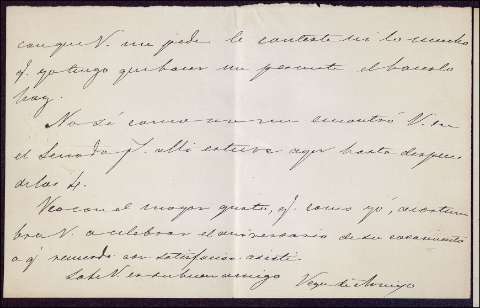 con que V. me pide le conteste ni lo mucho
q. yo tengo que hacer me permite el hacerlo
hoy.
No sé como no me encontró V. en
el Senado p. allí estuve ayer hasta despues
de las 4.
Veo con el mayor gusto, q. como yó, acostum
bra V. a celebrar el aniversario de su casamiento
a q. recuerdo con satisfaccion asistí.
Sabe V. es su buen amigo
Vega de Armijo